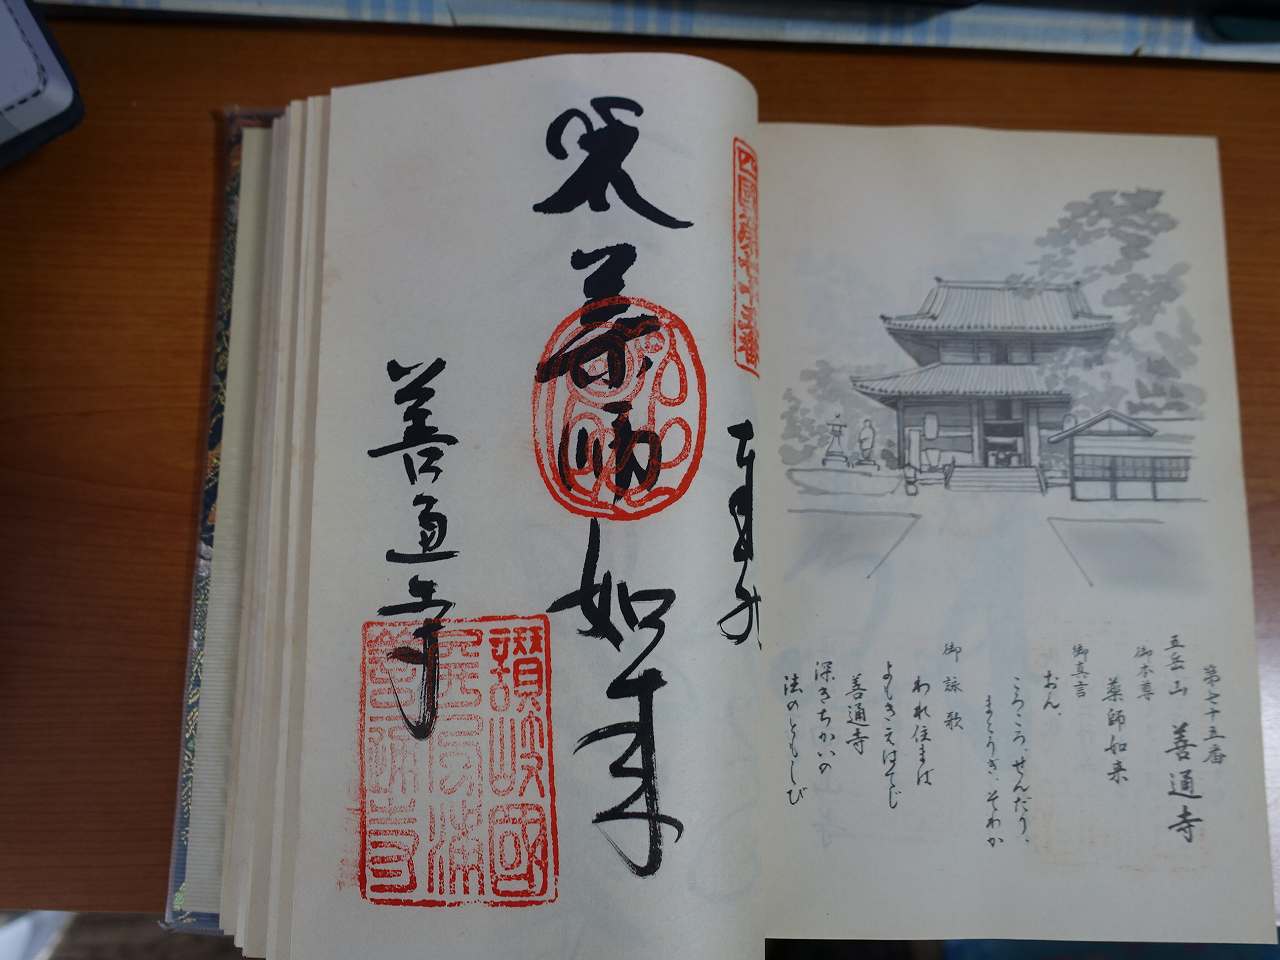 第七十五番
五岳山 善通寺
御本尊
薬師如来
御真言
おん、
ころころ、せんだり、
まとうぎ、そわか
御詠歌
われ住まば
よもきえはてじ
善通寺
深きちかいの
法のともしび
四國第七十五番
奉納
薬師如来
善通寺
讃岐國